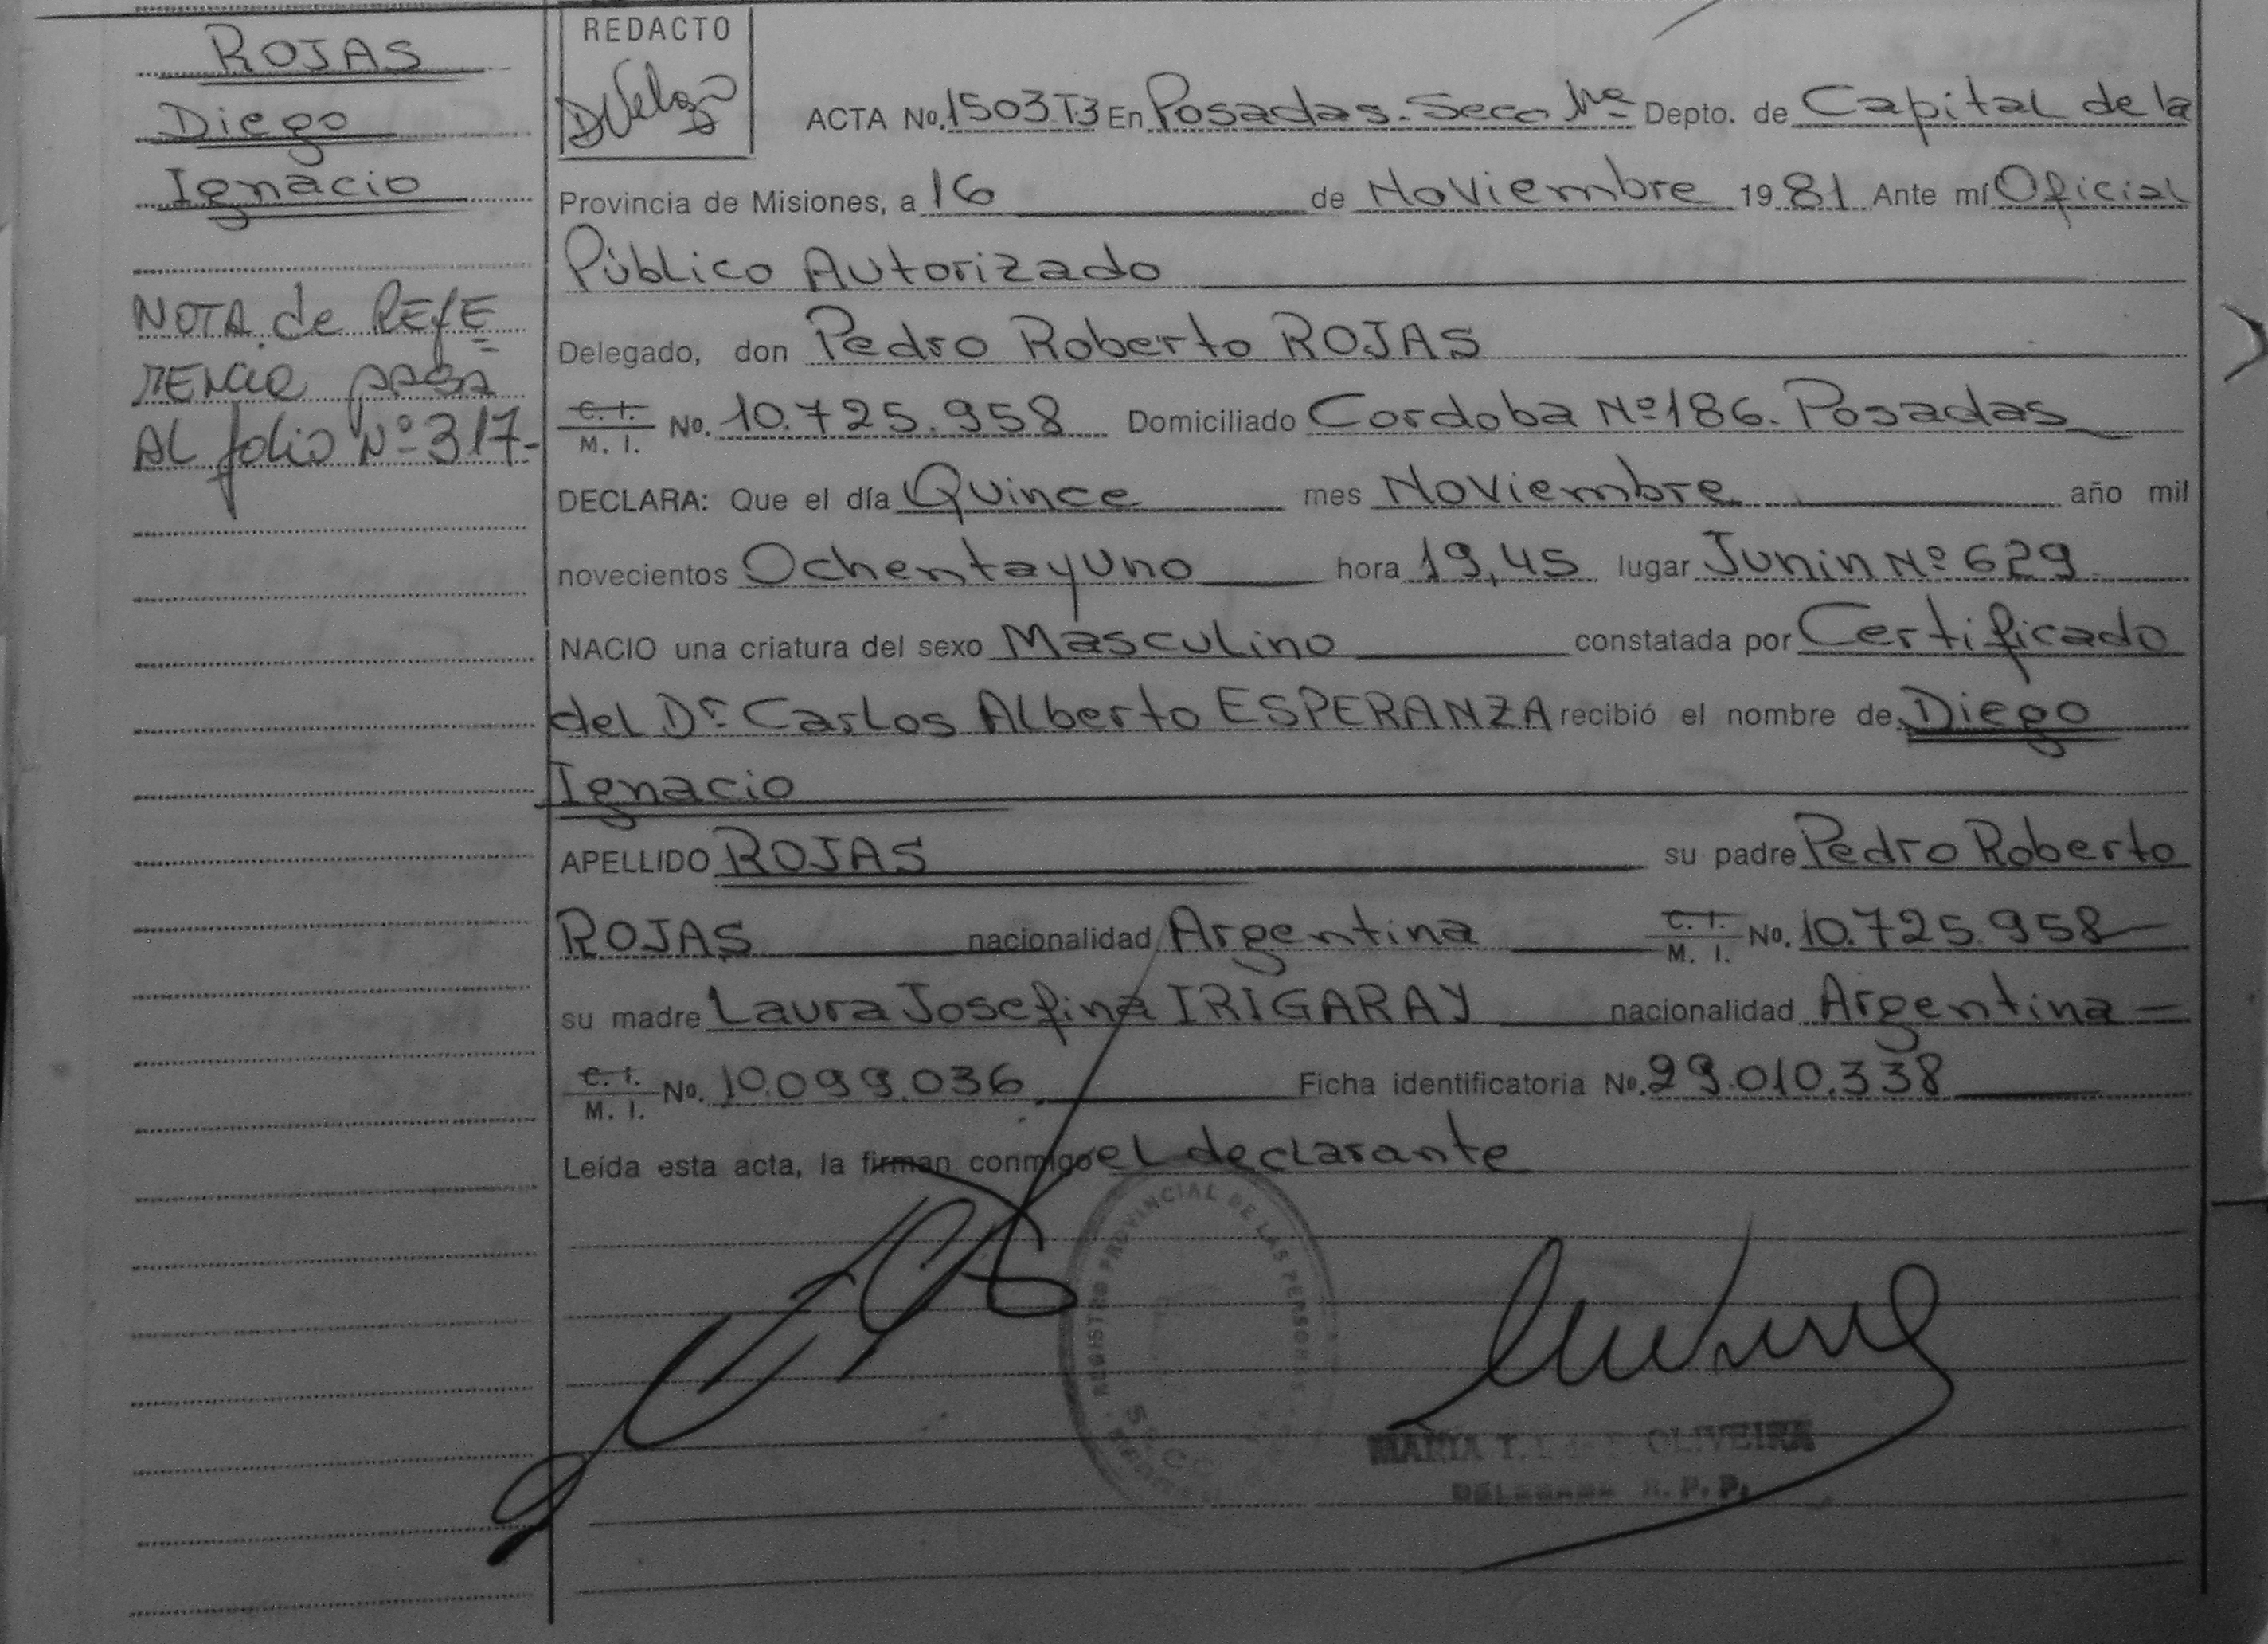 ROJAS
Diego
Ignacio
NOTA de REfE
RENCIA pasa
AL folio Nº 317-
REDACTO
ACTA No. 1503 T3 En Posadas. Secc Depto. de Capital de la
Provincia de Misiones, a 16 de Noviembre 1981 Ante mí Oficial
Público Autorizado
Delegado, don Pedro Roberto ROJAS
C. I.
M. I. No. 10.725.958 Domiciliado Cordoba Nº 186. Posadas
DECLARA: Que el día Quince mes Noviembre año mil
novecientos Ochentayuno hora 19,45 lugar Junin Nº 629
NACIO una criatura del sexo Masculino constatada por Certificado
del Dr. Carlos Alberto ESPERANZA recibió el nombre de Diego
Ignacio
APELLIDO ROJAS su padre Pedro Roberto
ROJAS nacionalidad Argentina C. I.
M. I. No. 10.725.958
su madre Laura Josefina IRIGARAY nacionalidad Argentina
C. I.
M. I. No. 10.099.036 Ficha identificatoria No. 29.010.338
Leída esta acta, la firman conmigo el declarante
REGISTRO PROVINCIAL DE LAS PERSONAS
MARIA T. OLIVEIRA
DELEGADA R. P. P.